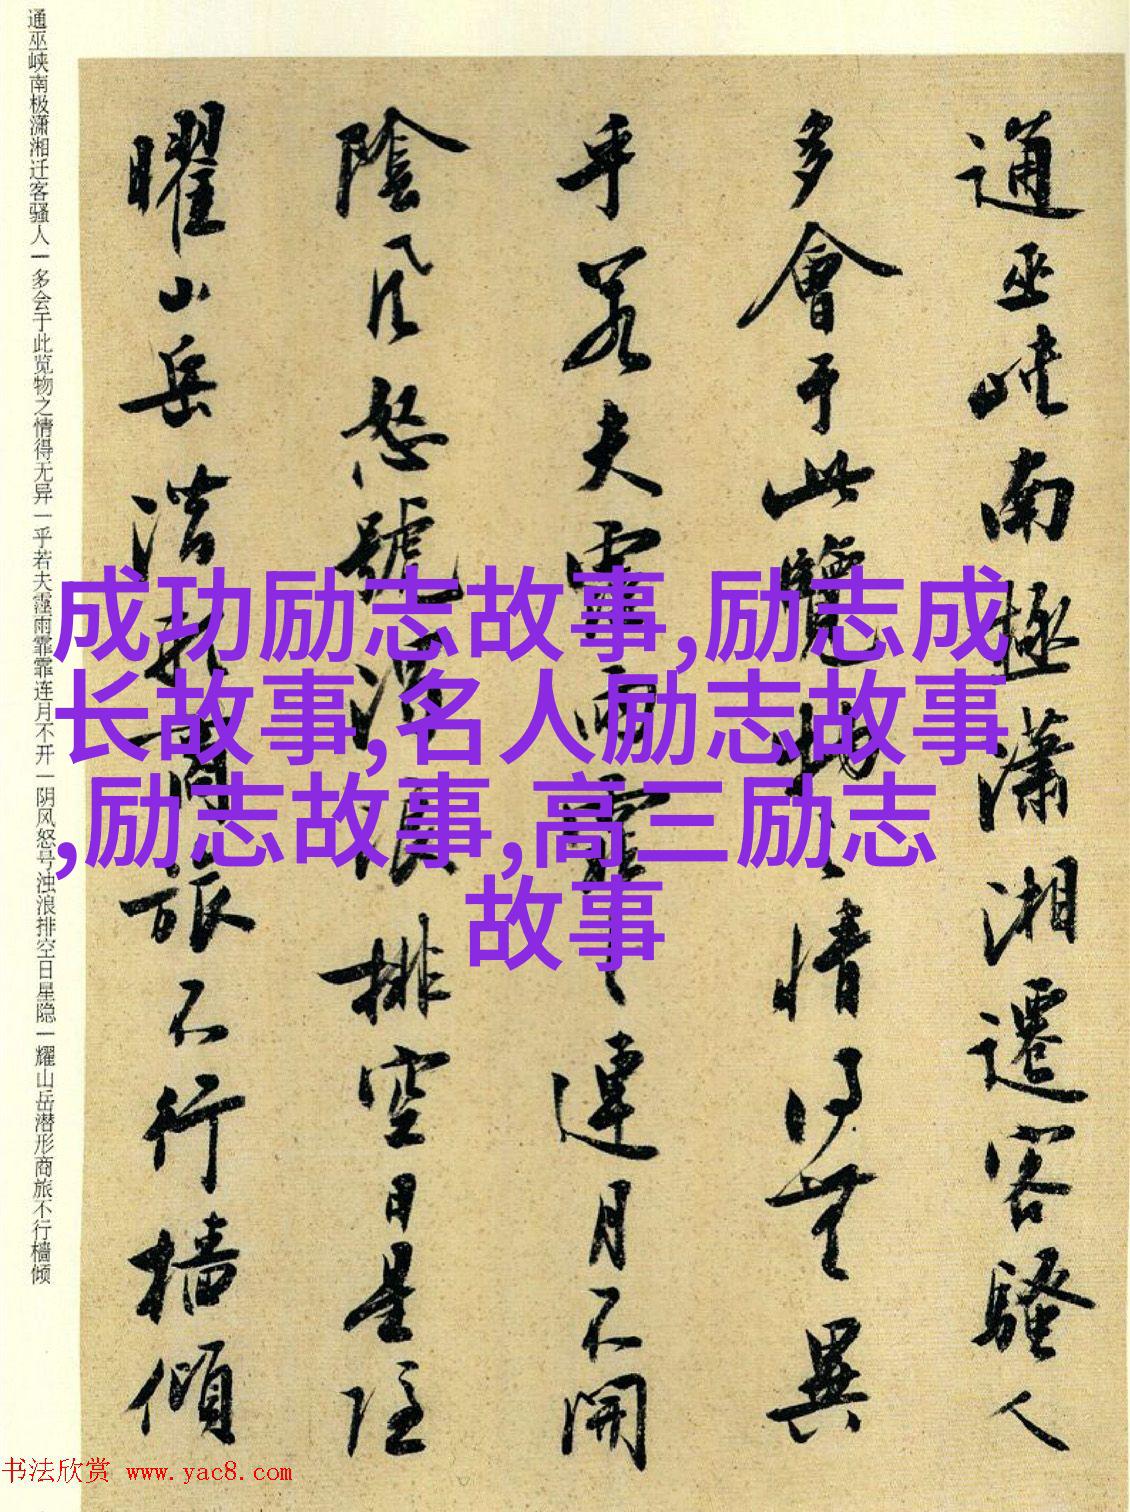 通巫峽南極瀟湘遷客騷人
多會于此覽物之情得無異
乎若夫霪雨霏霏連月不開
陰風怒號濁浪排空日星隱
曜山岳潛形商旅不行檣傾
通巫峡南极潇湘迁客骚人|多会于此览物之情得无异|乎若夫霪雨霏霏连月不开|阴风怒号浊浪排空日星隐|耀山岳潜形商旅不行樯倾
成功励志故事,励志成
长故事,名人励志故事
,励志故事,高三励志
故事
书法欣赏 www.yac8.com